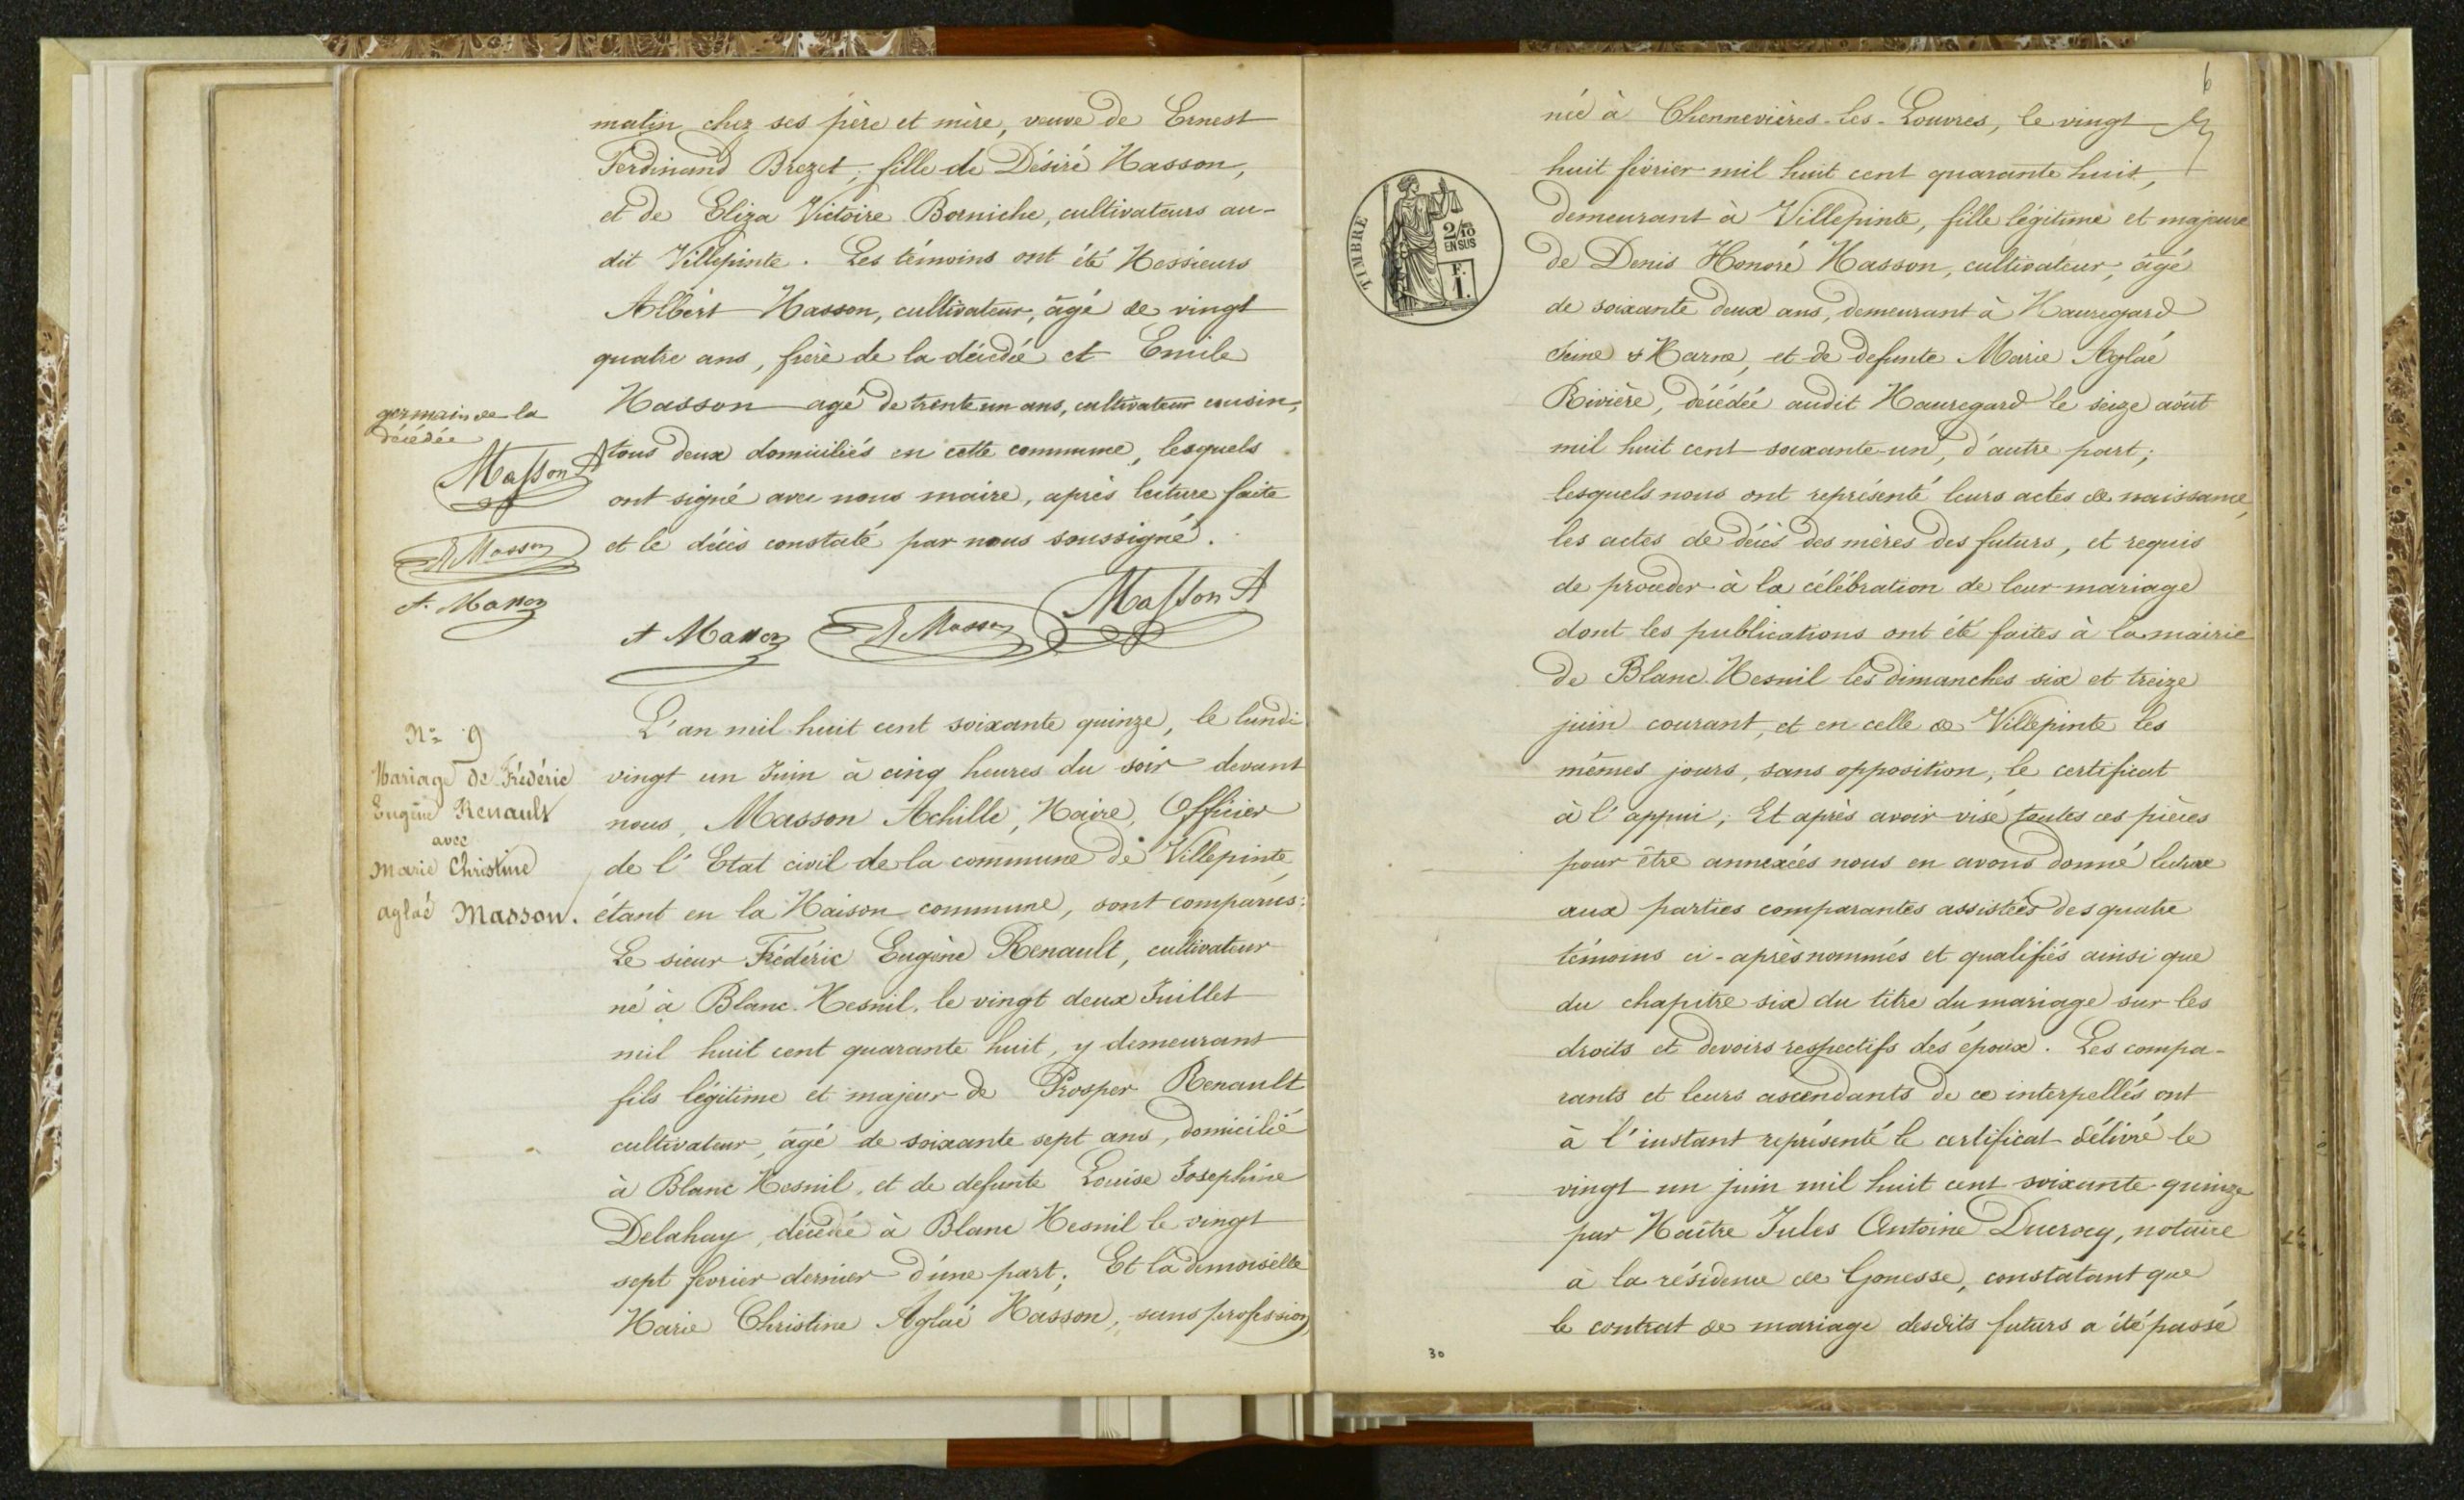 matin chez ses père et mère, veuve de Ernest
Ferdinand Brezet, fille de Désiré Masson,
et de Eliza Victoire Borniche, cultivateurs au-
dit Villepinte. Les témoins ont été Messieurs
Albert Masson, cultivateur, âgé de vingt
quatre ans, frère de la décédée et Emile
Masson agé de trente un ans, cultivateur cousin,
germain de la
décédée
tous deux domiciliés en cette commune, lesquels
ont signé avec nous maire, après lecture faite
et le décès constaté par nous soussigné.
Masson A
E Masson
A. Masson
A Masson E Masson Masson A
Nº 9
Mariage de Frédéric
Eugène Renault
avec
Marie Christine
aglaé Masson.
L'an mil huit cent soixante quinze, le lundi
vingt un Juin à cinq heures du soir devant
nous, Masson Achille, Maire, Officier
de l'Etat civil de la commune de Villepinte,
étant en la Maison commune, sont comparus:
Le sieur Frédéric Eugène Renault, cultivateur
né à Blanc-Mesnil, le vingt deux Juillet
mil huit cent quarante huit, y demeurant
fils légitime et majeur de Prosper Renault
cultivateur, âgé de soixante sept ans, domicilié
à Blanc Mesnil, et de defunte Louise Josephine
Delahay, décédée à Blanc Mesnil le vingt
sept fevrier dernier d'une part; Et la demoiselle
Marie Christine Aglaé Masson, sans profession,
6
née à Chennevières-les-Louvres, le vingt
huit février mil huit cent quarante huit,
demeurant à Villepinte, fille légitime et majeure
de Denis Honoré Masson, cultivateur, âgé
de soixante deux ans, demeurant à Mauregard
Seine & Marne, et de defunte Marie Aglaé
Rivière, décédée audit Mauregard le seize août
mil huit cent soixante-un, d'autre part;
lesquels nous ont représenté leurs actes de naissance,
les actes de décès des mères des futurs, et requis
de procéder à la célébration de leur mariage
dont les publications ont été faites à la mairie
de Blanc-Mesnil les dimanches six et treize
juin courant, et en celle de Villepinte les
mêmes jours, sans opposition, le certificat
à l'appui; Et après avoir visé toutes ces pièces
pour être annexées nous en avons donné lecture
aux parties comparantes assistées des quatre
témoins ci-après nommés et qualifiés ainsi que
du chapitre six du titre du mariage sur les
droits et devoirs respectifs des époux. Les compa-
rants et leurs ascendants de ce interpellés ont
à l'instant représenté le certificat délivré le
vingt un juin mil huit cent soixante-quinze
par Maître Jules Antoine Ducrocq, notaire
à la résidence de Gonesse, constatant que
le contrat de mariage desdits futurs a été passé
TIMBRE
2/10
EN SUS
F.
1.
30